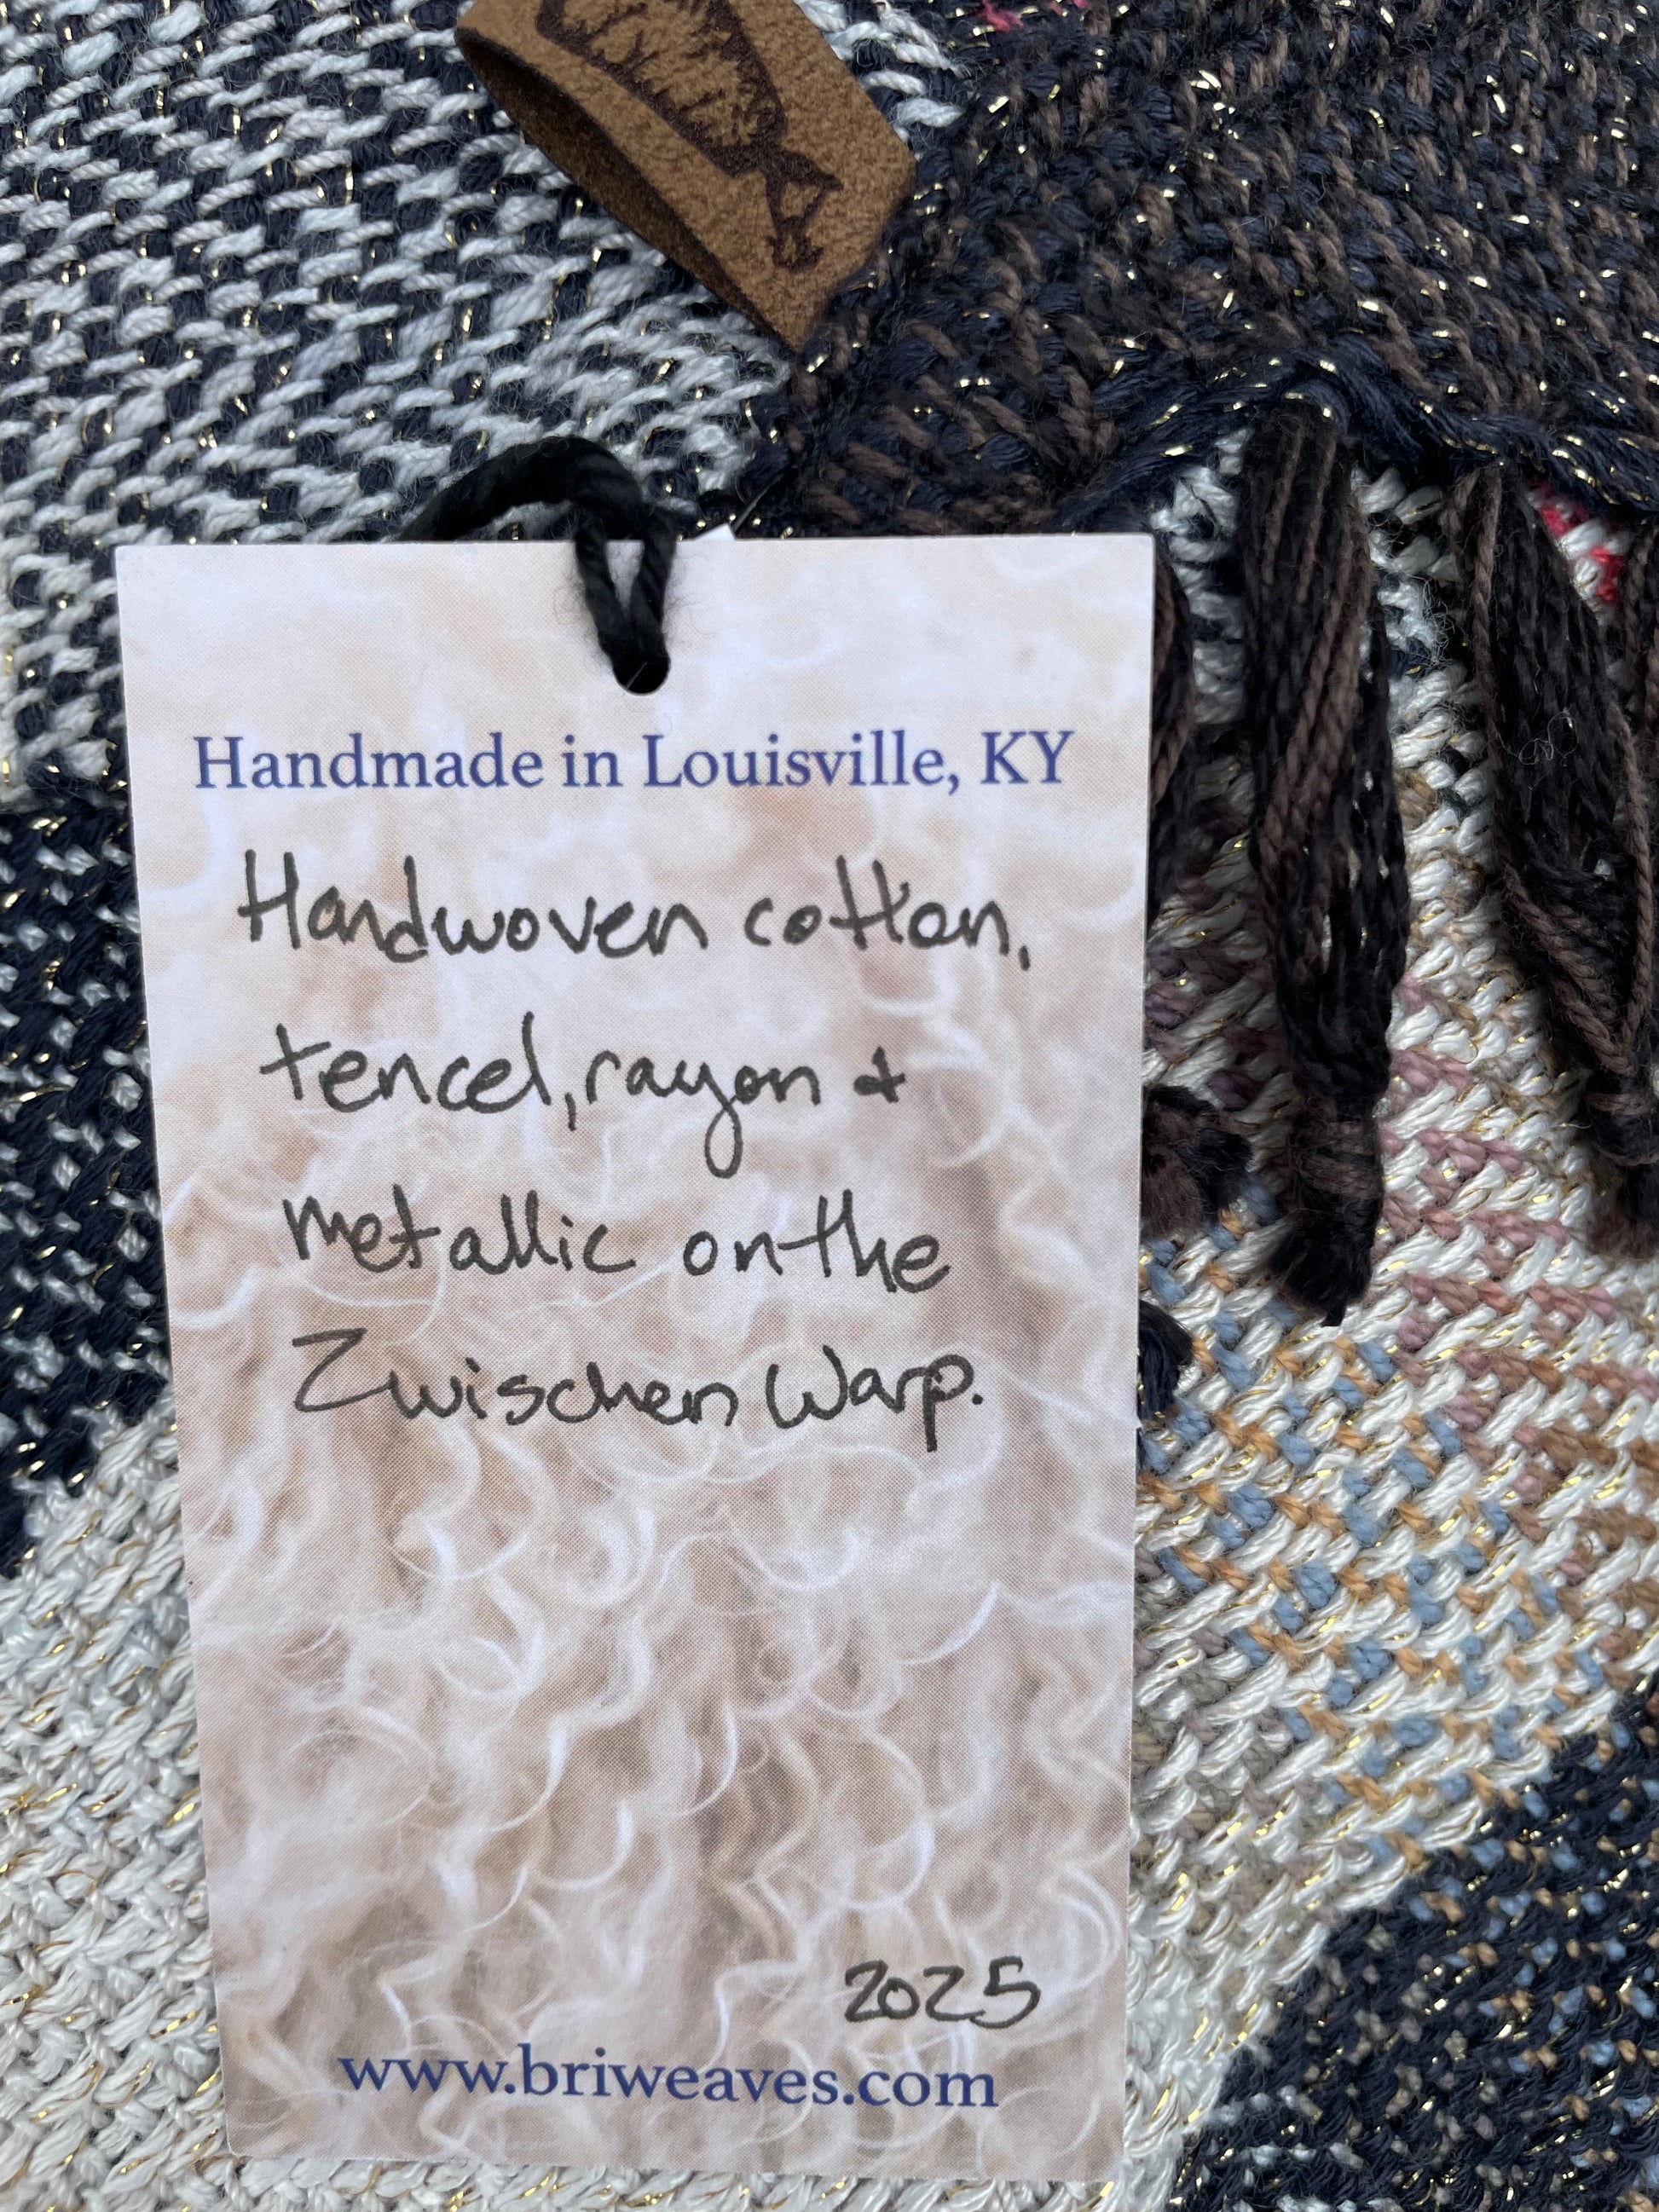 Handmade in Louisville, KY
Handwoven cotton,
tencel, rayon &
metallic on the
Zwischen Warp.
2025
www.briweaves.com